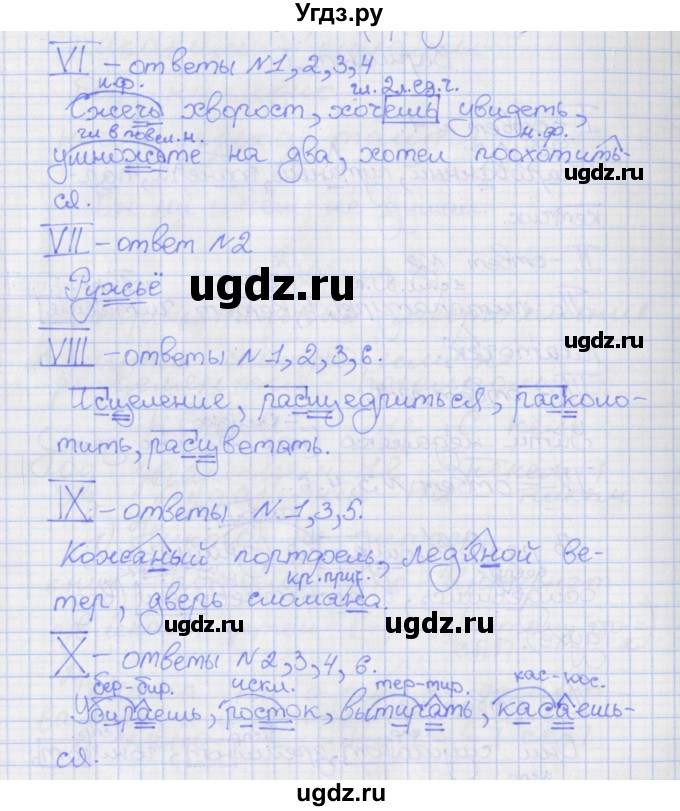 Угдз.ру
VI – ответы №1,2,3,4
н.ф. гл. 2л.ед.ч.
Сжечь хворост, хочешь увидеть,
гл в повел.н. н.ф.
умножьте на два, хотел поохотить-
ugdz.ru
ся.
VII – ответ №2
Ружьё
ugdz.ru
ugdz.ru
VIII – ответы №1,2,3,6.
Исцеление, расщедриться, расколо-
тить, расцветать.
IX – ответы №1,3,5.
Кожаный портфель, ледяной ве-
кр. прич.
тер, дверь сломана.
ugdz.ru ugdz.ru
X – ответы №2,3,4,6.
бер-бир. искл. тер-тир. кас-кос.
Убираешь, росток, вытирать, касаешь-
ся.
ugdz.ru ugdz.ru